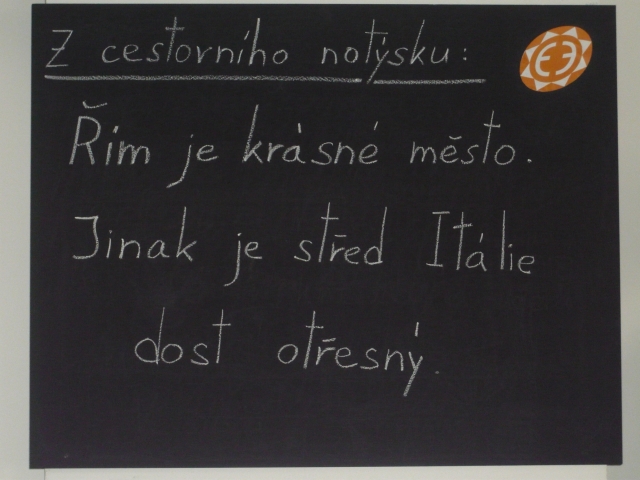 Z cestovního notýsku:
Řím je krásné město.
Jinak je střed Itálie
dost otřesný.